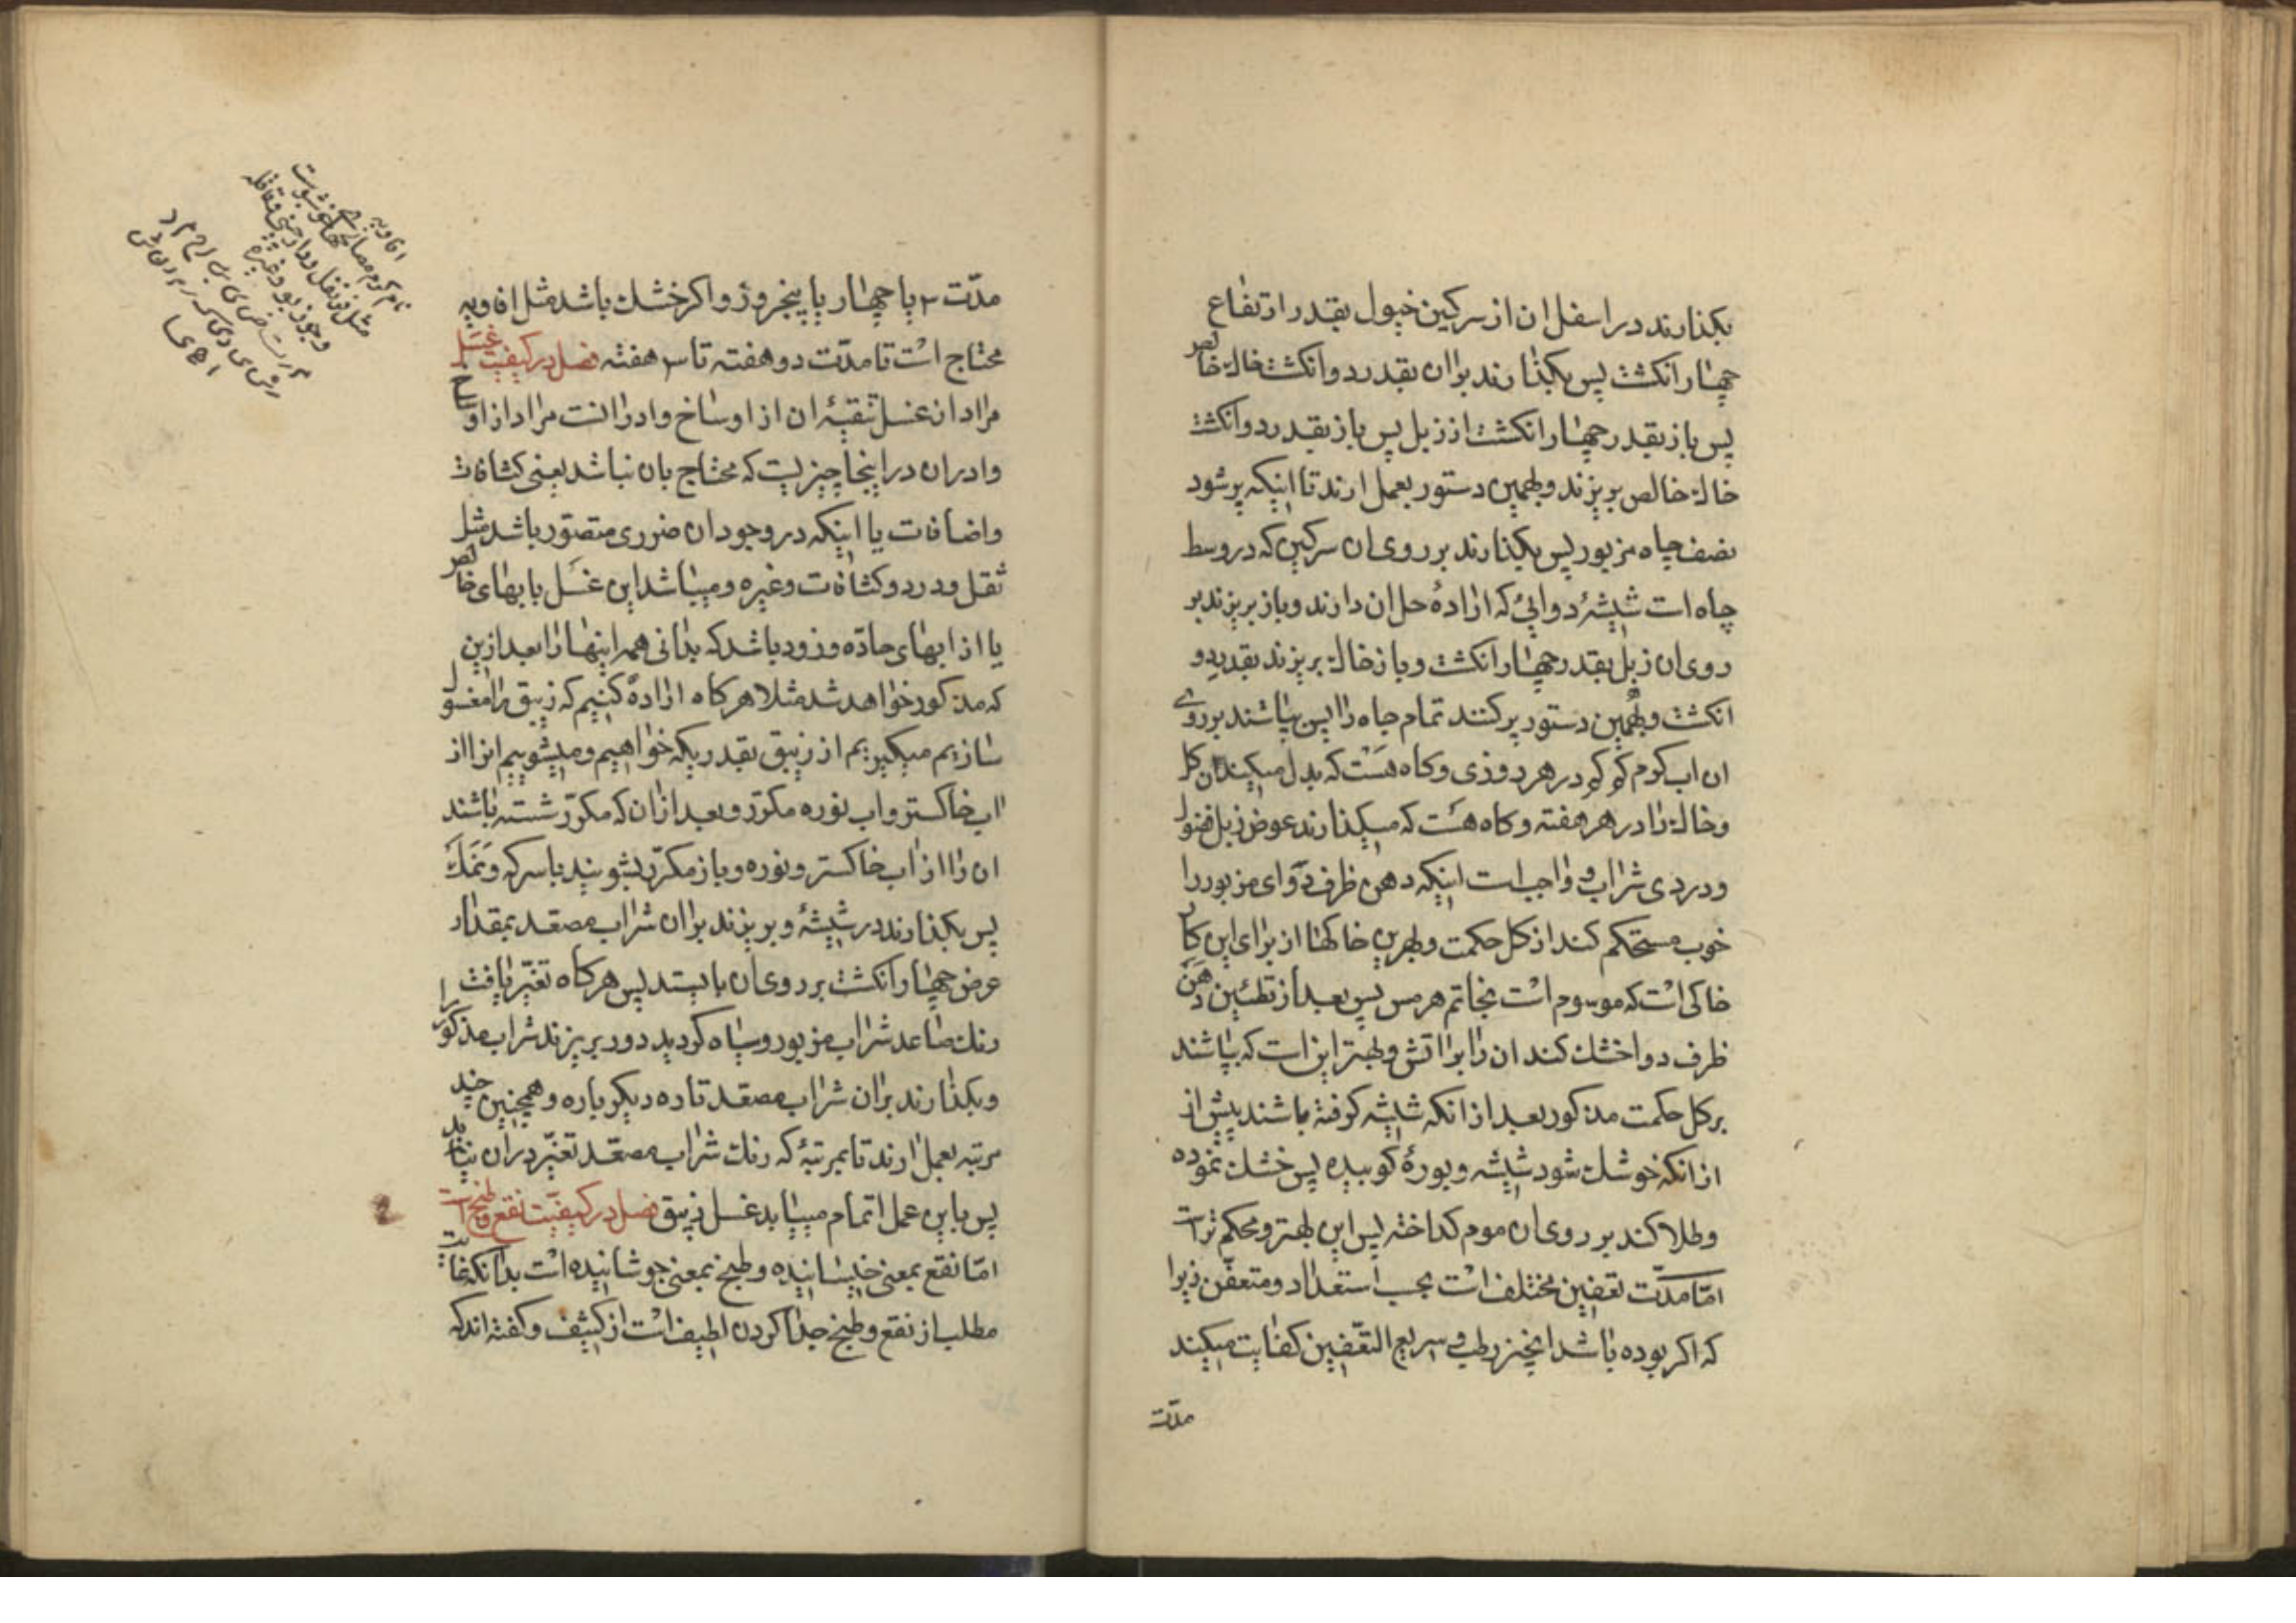 بکذارند در اسفل ان از سرکین خیول بقدر ارتفاع
چهار انکشت پس بکذارند بر ان بقدر دو انکشت خاک خالص
پس باز بقدر چهار انکشت از زبل پس باز بقدر دو انکشت
خاک خالص بریزند و بهمین دستور بعمل ارند تا اینکه پر شود
نصف چاه مزبور پس بکذارند بر روی ان سرکین که در وسط
چاه است شیشهٔ دوائی که ارادهٔ حل ان دارند و باز بریزند بر
روی ان زبل بقدر چهار انکشت و باز خاک بریزند بقدر دو
انکشت و بهمین دستور پر کنند تمام چاه را پس بپاشند بر روی
ان اب کرم در هر روزی و کاه هست که بدل میکنند
و خاک را در هر هفته و کاه هست که میکذارند عوض زبل
و دردی شراب و واجب است اینکه دهن ظرف دوای مزبور را
خوب مستحکم کند از کل حکمت و بهترین خاکها از برای این کار
خاکی است که موسوم است بخاتم هرمس پس بعد از تطئین دهن
ظرف دوا خشک کند ان را بر اتش و بهتر این است که بپاشند
بر کل حکمت مذکور بعد از انکه شیشه کرفته باشند پیش از
از انکه خوشک شود شیشه و بورهٔ کوبیده پس خشک نموده
و طلا کند بر روی ان موم کداخته پس این بهتر و محکم تر است
اما مدّت تعفین مختلف است بحسب استعداد و متعفّن زیرا
که اکر بوده باشد انچیز رطب و سریع التعّفین کفایت میکند
مدّت
مدّت ۳ یا چهار یا پنجروز و اکر خشک باشد مثل افاویه
محتاج است تا مدّت دو هفته تا ۳ هفته فصل در کیفیت غسل
مراد از غسل تنقیهٔ ان از اوساخ و ادران است مراد از اوساخ
و ادران در اینجا چیزیست که محتاج بان نباشد یعنی کثافات
و اضافات یا اینکه در وجود ان ضرری متصوّر باشد مثل
ثقل و درد و کثافات و غیره و میباشد این غسل یا بابهای خالص
یا از ابهای حادّه و زود باشد که بدانی همه اینها را بعد ازین
که مذکور خواهد شد مثلا هرکاه اراده کنیم که زیبق را مغسول
سازیم میکیریم از زیبق بقدریکه خواهیم و میشوییم انرا از
اب خاکستر و اب نوره مکرّر و بعد از ان که مکرّر شسته باشند
ان را از اب خاکستر و نوره و باز مکرّر بشویند با سرکه و نمک
پس بکذارند در شیشهٔ و بریزند بر ان شراب مصعّد بمقدار
عرض چهار انکشت بر روی ان بایستد پس هرکاه تغیّر یافت
رنک صاعد شراب مزبور و سیاه کردید دور بریزند شراب مذکور را
و بکذارند بر ان شراب مصعّد تازه دیکر باره و همچنین چند
مرتبه بعمل ارند تا بمرتبهٔ که رنک شراب مصعّد تغیّر در ان نیابد
پس باین عمل اتمام مییابد غسل زیبق فصل در کیفیّت نقع و طبخ است
امّا نقع بمعنی خیسانیده و طبخ بمعنی جوشانیده است بدانکه غایت
مطلب از نقع و طبخ جدا کردن لطیف است از کثیف و کفته اند که
افاویه
مثل قرنفل و دارچینی و قاقله
و جوز بو و غیره